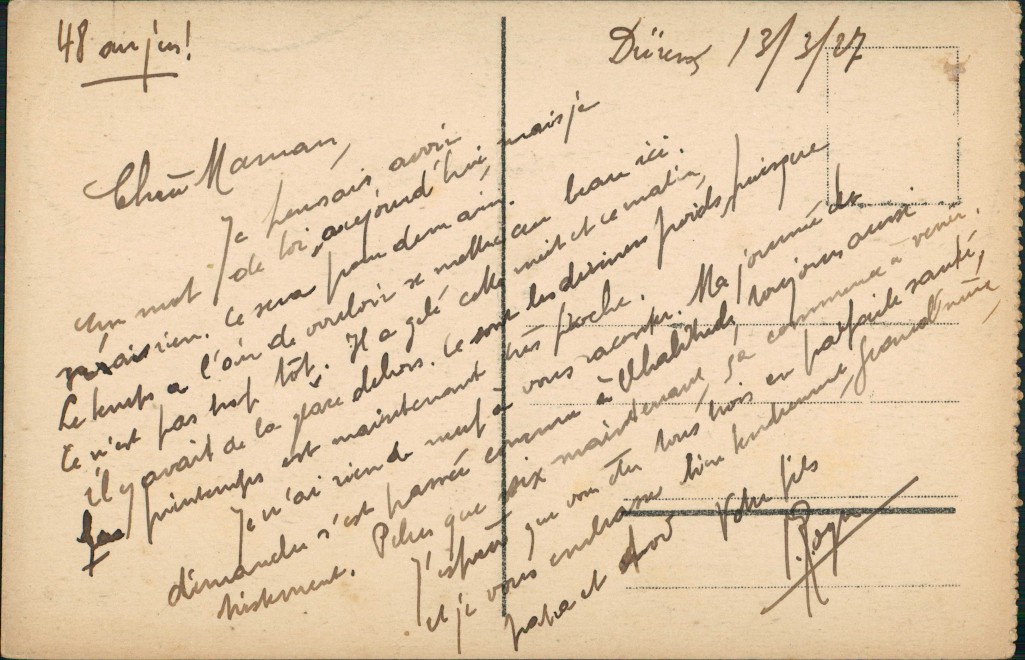 48 au jus!
Düren, 13/3/27
Chère Maman,
Je pensais avoir
un mot de toi aujourd'hui, mais je
n'ai rien. Ce sera pour demain.
Le temps a l'air de vouloir se mettre au beau ici.
Ce n'est pas trop tôt. Il a gelé cette nuit et ce matin,
il y avait de la glace dehors. Ce sont les derniers froids, puisque
le printemps est maintenant très proche.
Je n'ai rien de neuf à vous raconter. Ma journée de
dimanche s'est passée comme à l'habitude, toujours aussi
tristement. Plus que six maintenant, ça commence à venir.
J'espère que vous êtes tous trois en parfaite santé,
et je vous embrasse bien tendrement, grand'mère,
papa et toi
Votre fils